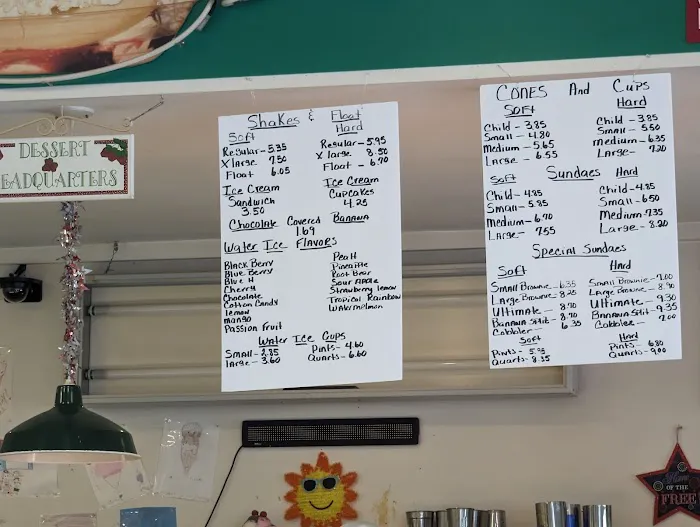 DESSERT
HEADQUARTERS
Shakes & Float
Soft
Regular - 5.35
X large 7.50
Float - 6.05
Hard
Regular - 5.95
X large - 8.50
Float - 6.70
Ice Cream
Sandwich
3.50
Ice Cream
Cupcakes
4.25
Chocolate Covered Banana
1.69
Water Ice Flavors
Black Berry
Blue Berry
Blue H
Cherry
Chocolate
Cotton Candy
Lemon
mango
Passion fruit
Peach
Pineapple
Root Beer
Sour Apple
Strawberry lemon
Tropical Rainbow
Watermelman
Water Ice Cups
Small - 2.85
large - 3.60
Pints - 4.60
Quarts - 6.60
Cones And Cups
Soft
Child - 3.85
Small - 4.80
medium - 5.65
Large - 6.55
Hard
Child - 3.85
Small - 5.50
medium - 6.35
Large - 7.20
Sundaes
Soft
Child - 4.85
Small - 5.85
medium - 6.70
Large - 7.55
Hard
Child - 4.85
Small - 6.50
Medium 7.35
Large - 8.20
Special Sundaes
Soft
Small Brownie - 6.35
Large Brownie - 8.25
Ultimate - 8.70
Banana Split - 8.70
Cobbler - 6.35
Hard
Small Brownie - 7.00
Large Brownie - 8.90
Ultimate - 9.30
Banana Split - 9.35
Cobbler - 7.00
Soft
Pints - 5.95
Quarts - 8.35
Hard
Pints - 6.80
Quarts - 9.00
OF THE
FREE